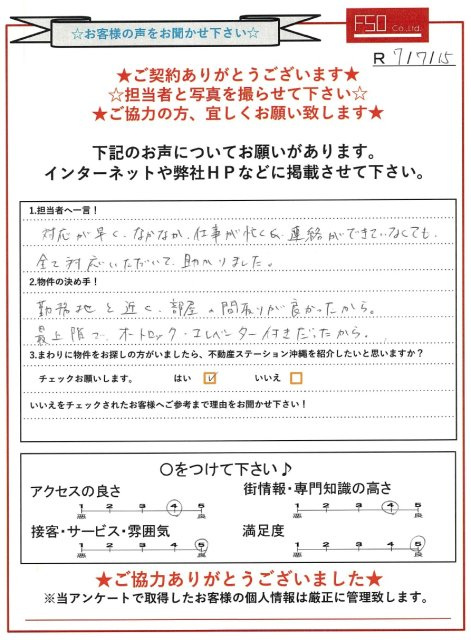 ☆お客様の声をお聞かせ下さい☆
FSO Co.,Ltd.
R 7/7/15
★ご契約ありがとうございます★
☆担当者と写真を撮らせて下さい☆
★ご協力の方、宜しくお願い致します★
下記のお声についてお願いがあります。
インターネットや弊社HPなどに掲載させて下さい。
1.担当者へ一言！
対応が早く、なかなか、仕事が忙しく 連絡ができていなくても、
全て対応いただいて、助かりました。
2.物件の決め手！
勤務地と近く、部屋の間取りが良かったから。
最上階で、オートロック・エレベーター付きだったから。
3.まわりに物件をお探しの方がいましたら、不動産ステーション沖縄を紹介したいと思いますか？
チェックお願いします。 はい ☑ いいえ ☐
いいえをチェックされたお客様へご参考まで理由をお聞かせ下さい！
○をつけて下さい♪
アクセスの良さ 街情報・専門知識の高さ
1 2 3 4 5 1 2 3 4 5
悪 良 悪 良
接客・サービス・雰囲気 満足度
1 2 3 4 5 1 2 3 4 5
悪 良 悪 良
★ご協力ありがとうございました★
※当アンケートで取得したお客様の個人情報は厳正に管理致します。